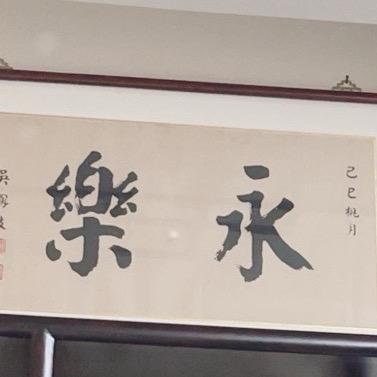 己巳桃月
永樂
吳